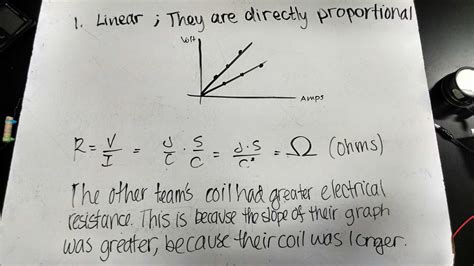 1. Linear ; They are directly proportional
Volt
Amps
R = V/I = J/C · S/C = J·S/C² = Ω (ohms)
The other team's coil had greater electrical
resistance. This is because the slope of their graph
was greater, because their coil was longer.